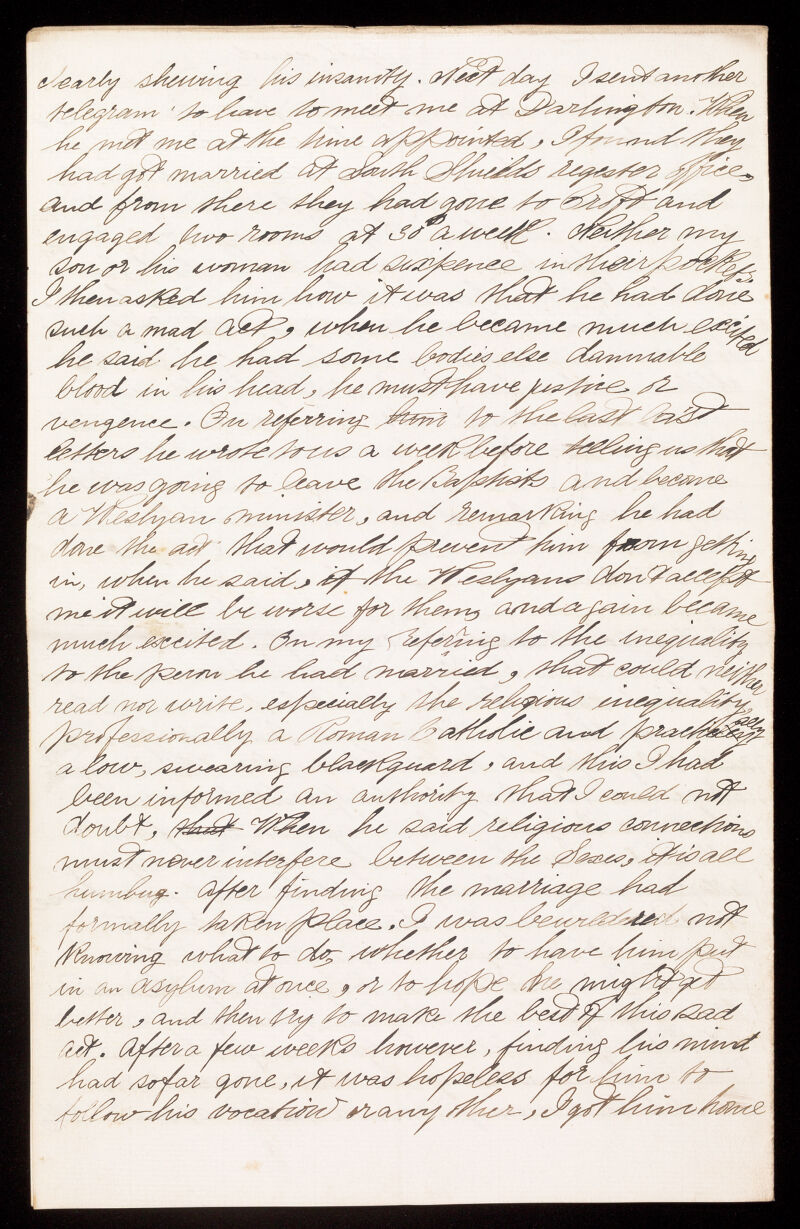 clearly shewing his insanity. Next day I sent another
telegram to have to meet me at Darlington. When
he met me at the time appointed, I found they
had got married at South Shields regester office,
and from there they had gone to Croft and
engaged two rooms at 30/ a week. Neither my
son or his woman had sixpence in their pockets.
I then asked him how it was that he had done
such a mad act, when he became much excited
he said he had some bodies else damnable
blood in his head, he must have justice or
vengence. On referring to the last
letters he wrote to us a week before telling us that
he was going to leave the Baptists and become
a Weslyan minister, and remarking he had
done the act that would prevent him from getting
in, when he said, if the Weslyans don't accept
me it will be worse for them, and again became
much excited. On my refering to the inequality
to the person he had married, that could neither
read nor write, especially the religious inequality
professionally a Roman Catholic and practically
a low, swearing blackguard, and this I had
been informed on authority that I could not
doubt, that When he said religious connections
must never interfere between the Sexes, it is all
humbug. After finding the marriage had
formally taken place. I was bewildered not
knowing what to do, whether to have him put
in an asylum at once, or to hope he might get
better, and then try to make the best of this sad
act. After a few weeks however, finding his mind
had so far gone, it was hopeless for him to
follow his vocation or any other, I got him home